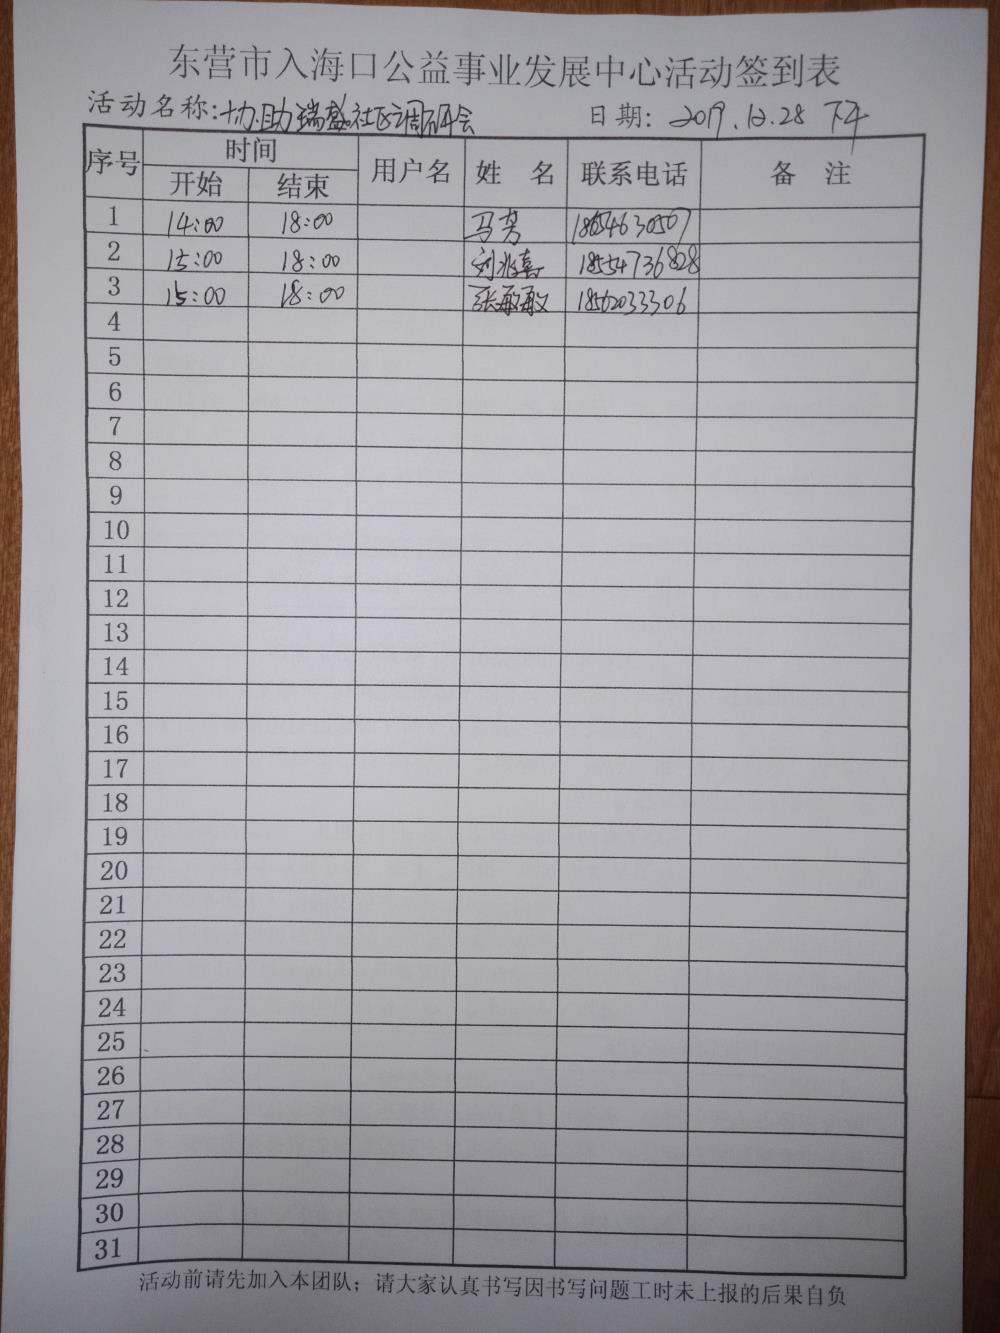 东营市入海口公益事业发展中心活动签到表
活动名称：协助瑞盛社区调研会 日期：2019.12.28 下午
序号 时间 用户名 姓 名 联系电话 备 注
开始 结束
1 14:00 18:00 马芳 18654630507
2 15:00 18:00 刘兆喜 18554736828
3 15:00 18:00 张敏敏 18562033306
4
5
6
7
8
9
10
11
12
13
14
15
16
17
18
19
20
21
22
23
24
25
26
27
28
29
30
31
活动前请先加入本团队；请大家认真书写因书写问题工时未上报的后果自负